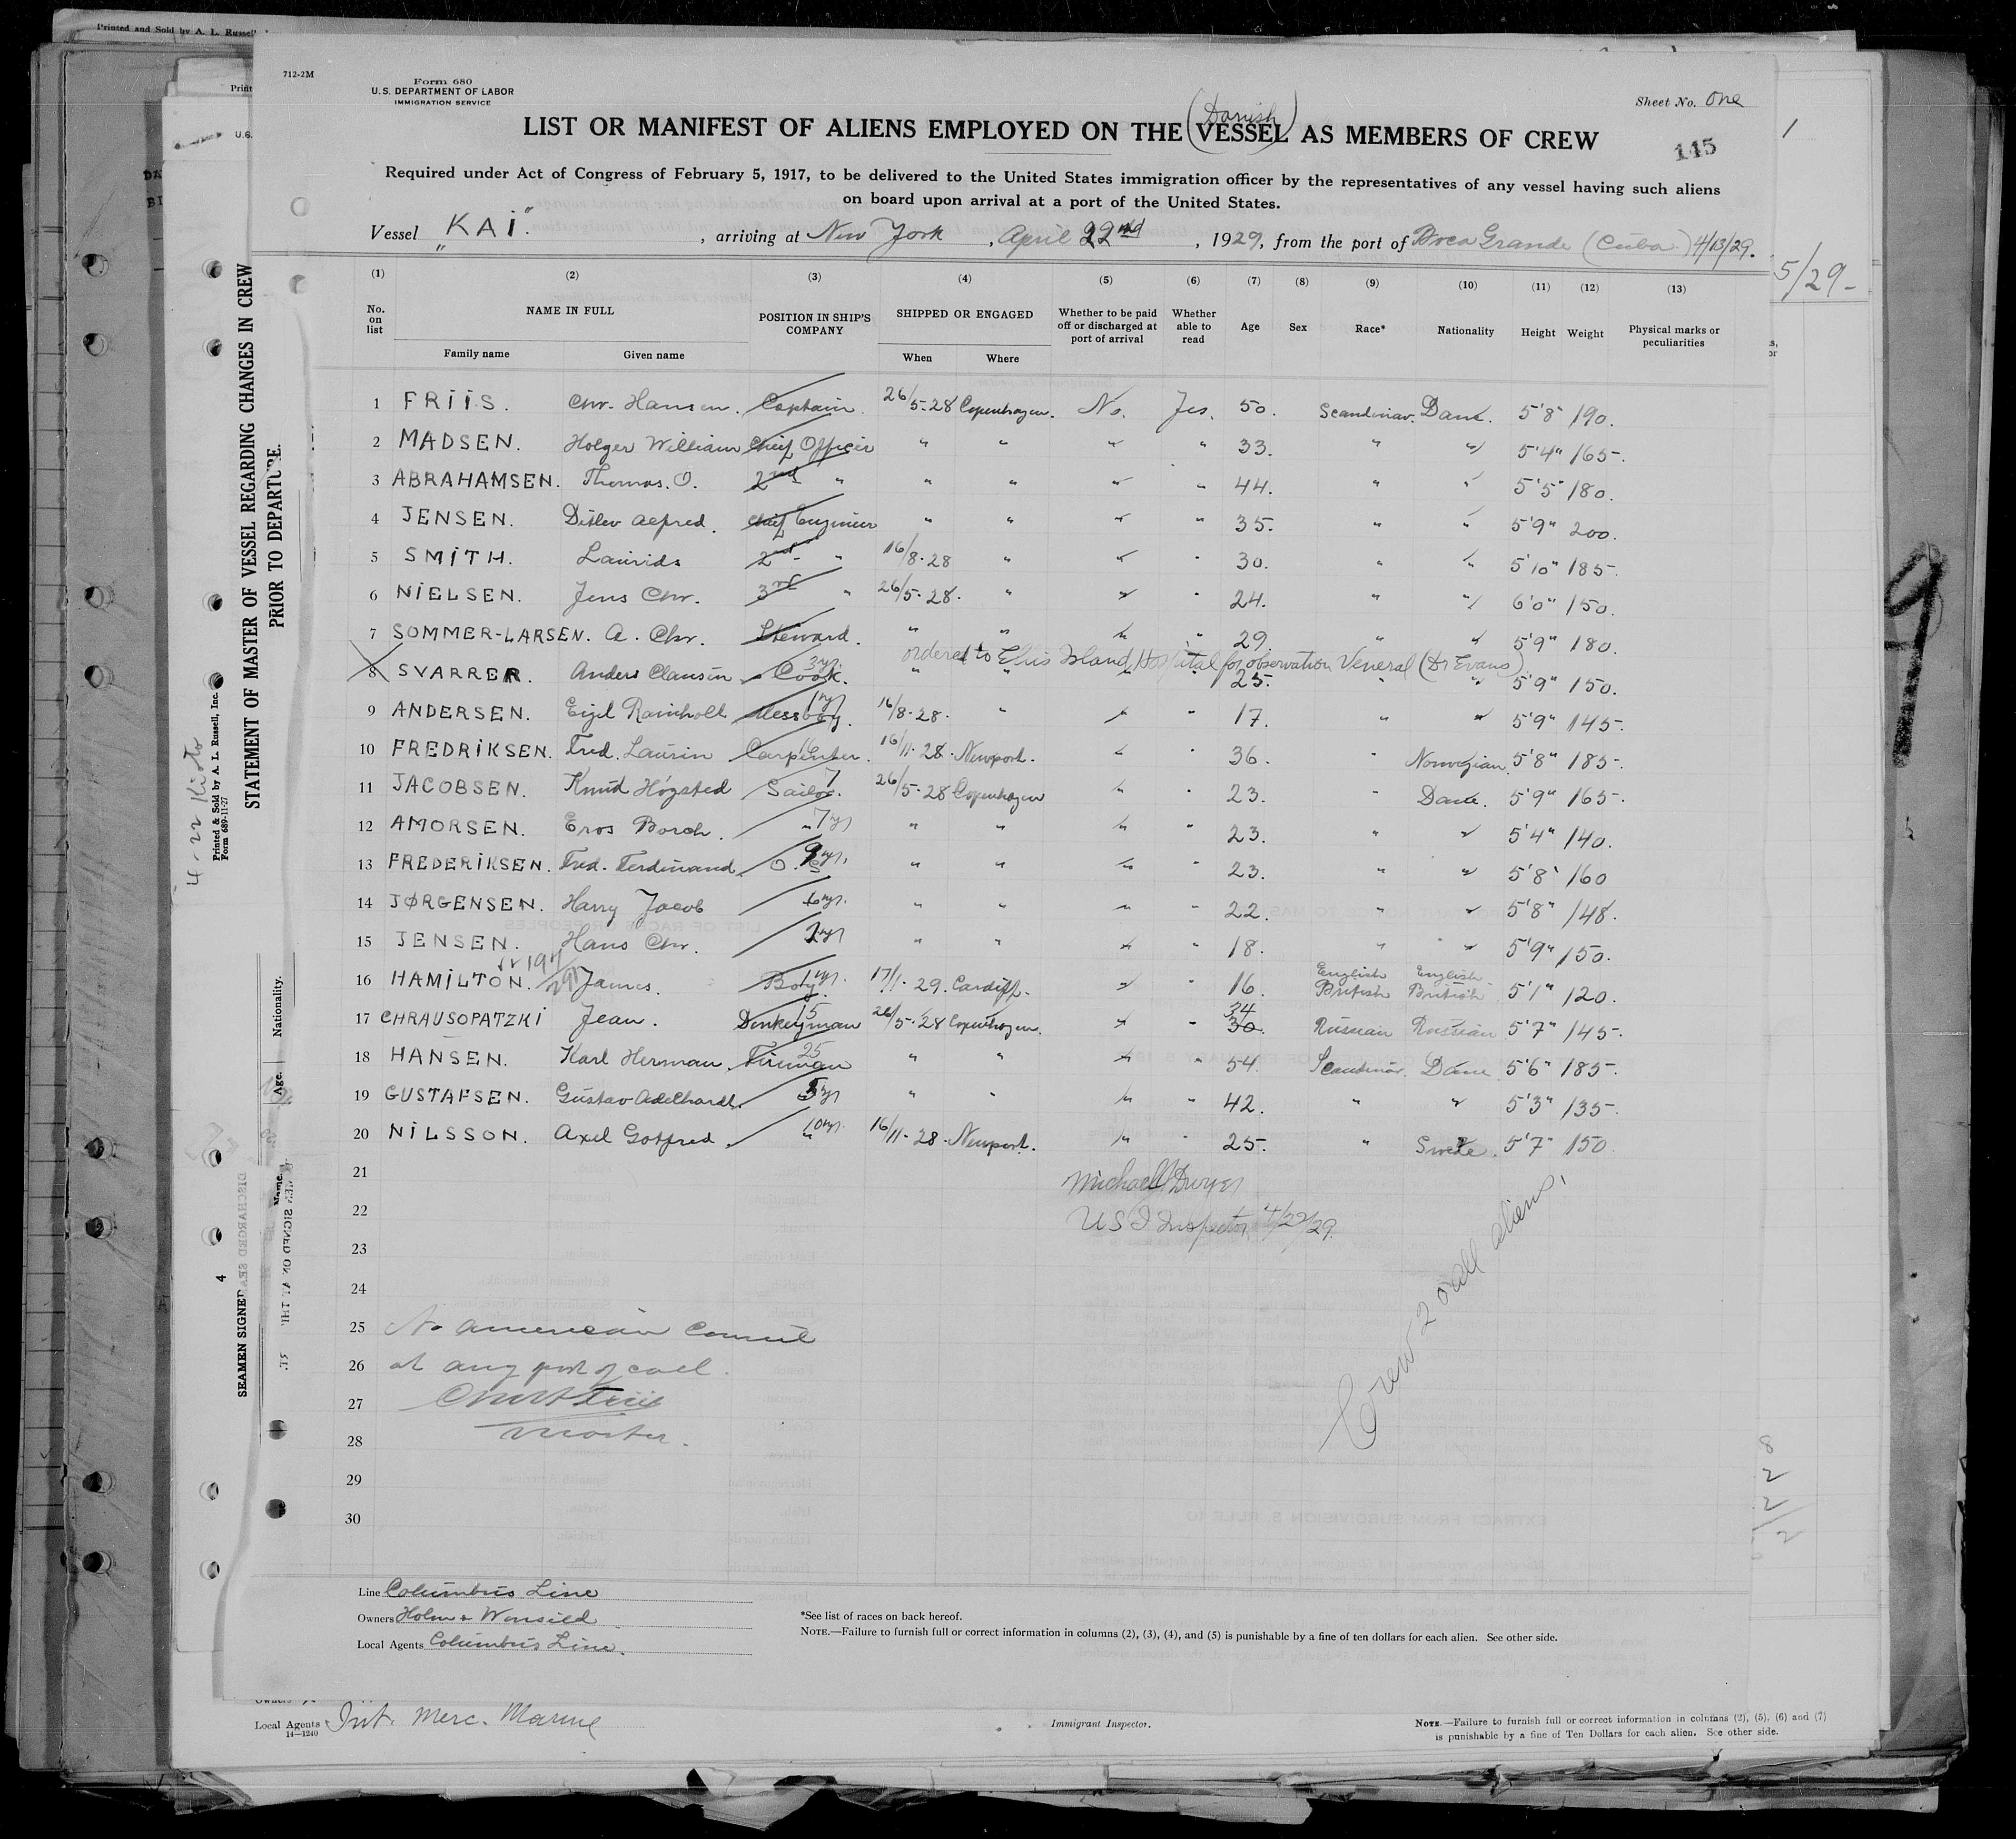 Printed and Sold by A. L. Russell
712-2M
Form 680
U.S. DEPARTMENT OF LABOR
IMMIGRATION SERVICE
Sheet No. One
(Danish)
LIST OR MANIFEST OF ALIENS EMPLOYED ON THE VESSEL AS MEMBERS OF CREW
115
Required under Act of Congress of February 5, 1917, to be delivered to the United States immigration officer by the representatives of any vessel having such aliens
on board upon arrival at a port of the United States.
Vessel „KAI". , arriving at New York , April 22nd , 1929, from the port of Boca Grande (Cuba) 4/13/29.
5/29-
(1) (2) (3) (4) (5) (6) (7) (8) (9) (10) (11) (12) (13)
No. on list NAME IN FULL POSITION IN SHIP'S COMPANY SHIPPED OR ENGAGED Whether to be paid off or discharged at port of arrival Whether able to read Age Sex Race* Nationality Height Weight Physical marks or peculiarities
Family name Given name When Where
1 FRIIS. Chr. Hansen. Captain. 26/5-28 Copenhagen. No. Yes. 50. Scandinav. Dane. 5'8" 190.
2 MADSEN. Holger William Chief Officer " " " " 33. " " 5'4" 165-.
3 ABRAHAMSEN. Thomas. O. 2nd " " " " " 44. " " 5'5" 180.
4 JENSEN. Ditlev Alfred. Chief Engineer " " " " 35. " " 5'9" 200.
5 SMITH. Laurids 2nd " 16/8-28 " " " 30. " " 5'10" 185-.
6 NIELSEN. Jens Chr. 3rd " 26/5-28. " " " 24. " " 6'0" 150.
7 SOMMER-LARSEN. A. Chr. Steward. " " " 29 " " 5'9" 180.
ordered to Ellis Island Hospital for observation Veneral (Dr Evans)
8 SVARRER. Anders Clausen Cook. 3yr. " " " " 25. " " 5'9" 150.
9 ANDERSEN. Eigil Rainholt Messboy. 1yr 16/8-28. " " " 17. " " 5'9" 145-.
10 FREDRIKSEN. Fred. Laurin Carpenter. 16/11-28. Newport. " " 36. " Norwegian. 5'8" 185-.
11 JACOBSEN. Knud Högsted Sailor. 7 26/5-28 Copenhagen " " 23. " Dane. 5'9" 165-.
12 AMORSEN. Eros Borch. " 7yr " " " " 23. " " 5'4" 140.
13 FREDERIKSEN. Fred. Ferdinand O.S. 9yr. " " " " 23. " " 5'8" 160
14 JØRGENSEN. Harry Jacob 6yr. " " " " 22. " " 5'8" 148.
15 JENSEN. Hans Chr. 2yr " " " " 18. " " 5'9" 150.
16 HAMILTON. James. Boy. 1yr. 17/1-29. Cardiff. " " 16. English British English British 5'1" 120.
17 CHRAUSOPATZKI Jean. Donkeyman 15 26/5-28 Copenhagen. " " 30. 34 Russian Russian 5'7" 145-.
18 HANSEN. Karl Herman Fireman 25 " " " 54. Scandinav. Dane 5'6" 185-.
19 GUSTAFSEN. Gustav Adelhardt. 5yr " " " " 42. " " 5'3" 135-.
20 NILSSON. Axel Gotfred. " 10yr. 16/11-28. Newport. " " 25-. " Swede. 5'7" 150.
21
22
23
24
25
26
27
28
29
30
Michael Dwyer
US I Inspector 4/22/29.
Crew 20 all aliens,
No American Consul
at any port of call.
Chr H Friis
Master.
Line Columbus Line
Owners Holm & Wonsild
Local Agents Columbus Line.
*See list of races on back hereof.
NOTE.—Failure to furnish full or correct information in columns (2), (3), (4), and (5) is punishable by a fine of ten dollars for each alien. See other side.
Local Agents Int. Merc. Marine
14—1240
Immigrant Inspector.
NOTE.—Failure to furnish full or correct information in columns (2), (5), (6) and (7)
is punishable by a fine of Ten Dollars for each alien. See other side.
STATEMENT OF MASTER OF VESSEL REGARDING CHANGES IN CREW
PRIOR TO DEPARTURE.
Printed & Sold by A. L. Russell, Inc.
Form 689-11-27
Nationality.
Age.
Name.
SEAMEN SIGNED
4
9